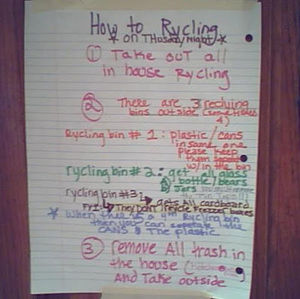 How to Rycling
* on Thusday/Night *
① Take out all
in house Rycling
② There are 3 reclying
bins outside (sometimes
4)
Rycling bin # 1: plastic/cans
in same one
Please keep
them
w/in the bin
rycling bin # 2: get all glass
bottle/bears
Jars
rycling bin # 3: gets All cardboard
FYI: They Don't recycle Freezer boxes
* When there is a 4th Rycling bin
then you can seperate the
CANS & The plastic
③ remove All trash in
the house
and Take outside